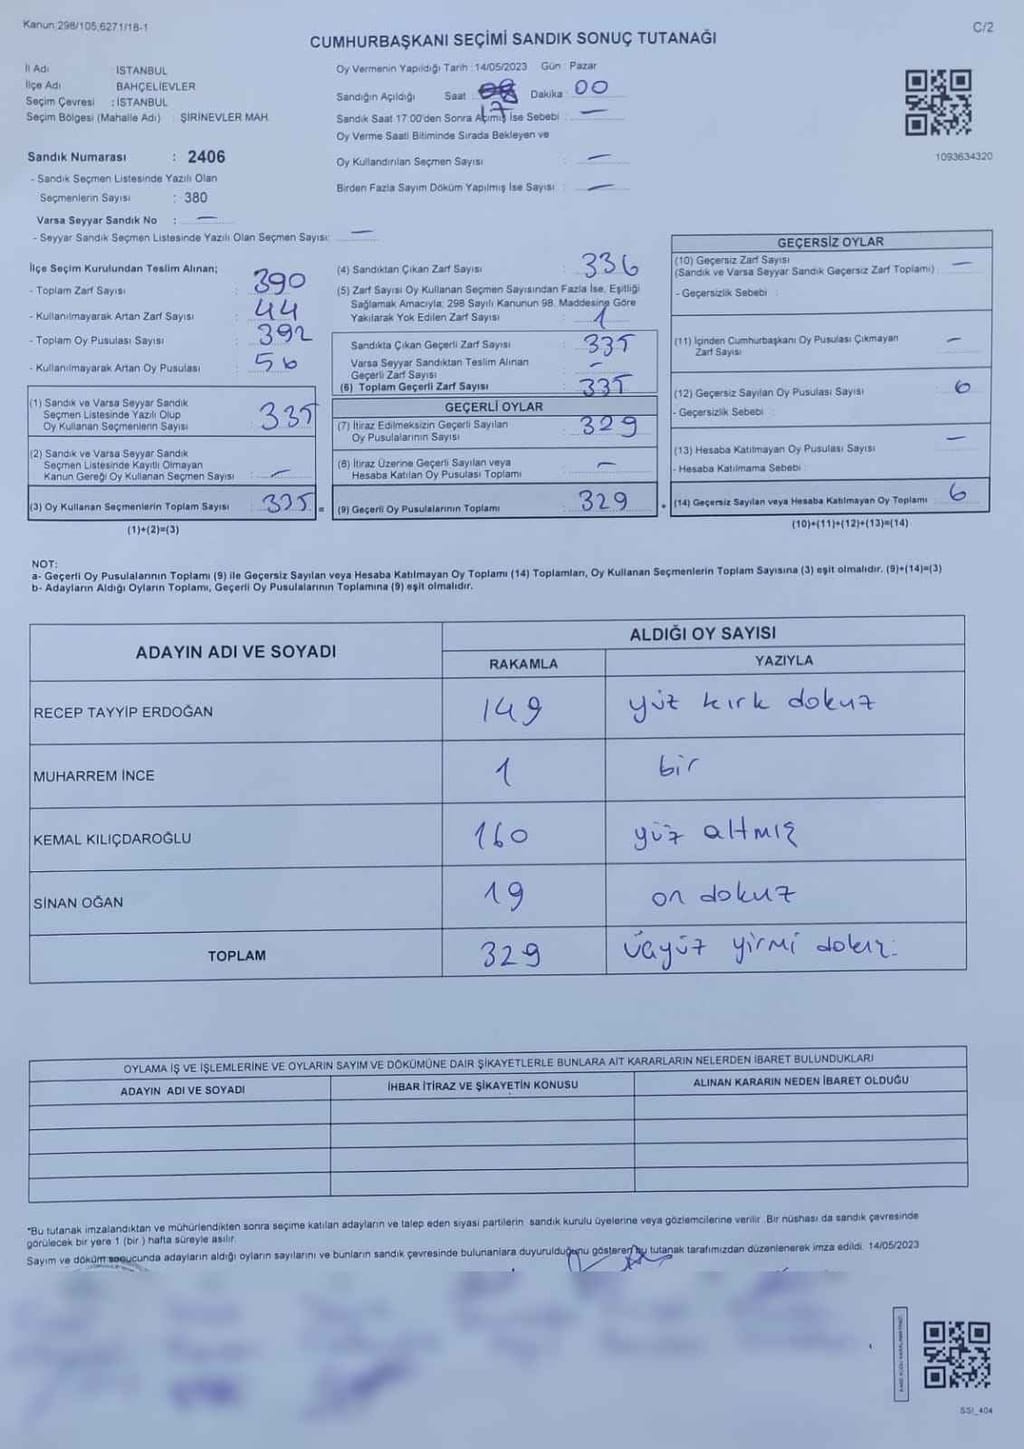 Kanun:298/105,6271/18-1
C/2
CUMHURBAŞKANI SEÇİMİ SANDIK SONUÇ TUTANAĞI
İl Adı İSTANBUL
İlçe Adı BAHÇELİEVLER
Seçim Çevresi : İSTANBUL
Seçim Bölgesi (Mahalle Adı) : ŞİRİNEVLER MAH.
Sandık Numarası : 2406
- Sandık Seçmen Listesinde Yazılı Olan
Seçmenlerin Sayısı : 380
Varsa Seyyar Sandık No : —
- Seyyar Sandık Seçmen Listesinde Yazılı Olan Seçmen Sayısı: —
Oy Vermenin Yapıldığı Tarih : 14/05/2023 Gün : Pazar
Sandığın Açıldığı Saat 17 Dakika : 00
Sandık Saat 17:00'den Sonra Açımış İse Sebebi : —
Oy Verme Saati Bitiminde Sırada Bekleyen ve
Oy Kullandırılan Seçmen Sayısı : —
Birden Fazla Sayım Döküm Yapılmış İse Sayısı : —
1093634320
İlçe Seçim Kurulundan Teslim Alınan;
- Toplam Zarf Sayısı : 390
- Kullanılmayarak Artan Zarf Sayısı : 44
- Toplam Oy Pusulası Sayısı : 392
- Kullanılmayarak Artan Oy Pusulası : 56
(1) Sandık ve Varsa Seyyar Sandık
Seçmen Listesinde Yazılı Olup
Oy Kullanan Seçmenlerin Sayısı : 335
(2) Sandık ve Varsa Seyyar Sandık
Seçmen Listesinde Kayıtlı Olmayan
Kanun Gereği Oy Kullanan Seçmen Sayısı : —
(3) Oy Kullanan Seçmenlerin Toplam Sayısı : 335 =
(1)+(2)=(3)
(4) Sandıktan Çıkan Zarf Sayısı : 336
(5) Zarf Sayısı Oy Kullanan Seçmen Sayısından Fazla İse, Eşitliği
Sağlamak Amacıyla; 298 Sayılı Kanunun 98. Maddesine Göre
Yakılarak Yok Edilen Zarf Sayısı : 1
Sandıkta Çıkan Geçerli Zarf Sayısı : 335
Varsa Seyyar Sandıktan Teslim Alınan
Geçerli Zarf Sayısı : —
(6) Toplam Geçerli Zarf Sayısı : 335
GEÇERLİ OYLAR
(7) İtiraz Edilmeksizin Geçerli Sayılan
Oy Pusulalarının Sayısı : 329
(8) İtiraz Üzerine Geçerli Sayılan veya
Hesaba Katılan Oy Pusulası Toplamı : —
(9) Geçerli Oy Pusulalarının Toplamı : 329 +
GEÇERSİZ OYLAR
(10) Geçersiz Zarf Sayısı
(Sandık ve Varsa Seyyar Sandık Geçersiz Zarf Toplamı) : —
- Geçersizlik Sebebi :
(11) İçinden Cumhurbaşkanı Oy Pusulası Çıkmayan
Zarf Sayısı : —
(12) Geçersiz Sayılan Oy Pusulası Sayısı : 6
- Geçersizlik Sebebi :
(13) Hesaba Katılmayan Oy Pusulası Sayısı : —
- Hesaba Katılmama Sebebi
(14) Geçersiz Sayılan veya Hesaba Katılmayan Oy Toplamı : 6
(10)+(11)+(12)+(13)=(14)
NOT:
a- Geçerli Oy Pusulalarının Toplamı (9) ile Geçersiz Sayılan veya Hesaba Katılmayan Oy Toplamı (14) Toplamları, Oy Kullanan Seçmenlerin Toplam Sayısına (3) eşit olmalıdır. (9)+(14)=(3)
b- Adayların Aldığı Oyların Toplamı, Geçerli Oy Pusulalarının Toplamına (9) eşit olmalıdır.
ADAYIN ADI VE SOYADI
ALDIĞI OY SAYISI
RAKAMLA YAZIYLA
RECEP TAYYİP ERDOĞAN 149 yüz kırk dokuz
MUHARREM İNCE 1 bir
KEMAL KILIÇDAROĞLU 160 yüz altmış
SİNAN OĞAN 19 on dokuz
TOPLAM 329 üçyüz yirmi dokuz.
OYLAMA İŞ VE İŞLEMLERİNE VE OYLARIN SAYIM VE DÖKÜMÜNE DAİR ŞİKAYETLERLE BUNLARA AİT KARARLARIN NELERDEN İBARET BULUNDUKLARI
ADAYIN ADI VE SOYADI İHBAR İTİRAZ VE ŞİKAYETİN KONUSU ALINAN KARARIN NEDEN İBARET OLDUĞU
*Bu tutanak imzalandıktan ve mühürlendikten sonra seçime katılan adayların ve talep eden siyasi partilerin sandık kurulu üyelerine veya gözlemcilerine verilir. Bir nüshası da sandık çevresinde
görülecek bir yere 1 (bir) hafta süreyle asılır.
Sayım ve döküm sonucunda adayların aldığı oyların sayılarını ve bunların sandık çevresinde bulunanlara duyurulduğunu gösteren bu tutanak tarafımızdan düzenlenerek imza edildi. 14/05/2023
SSI_404